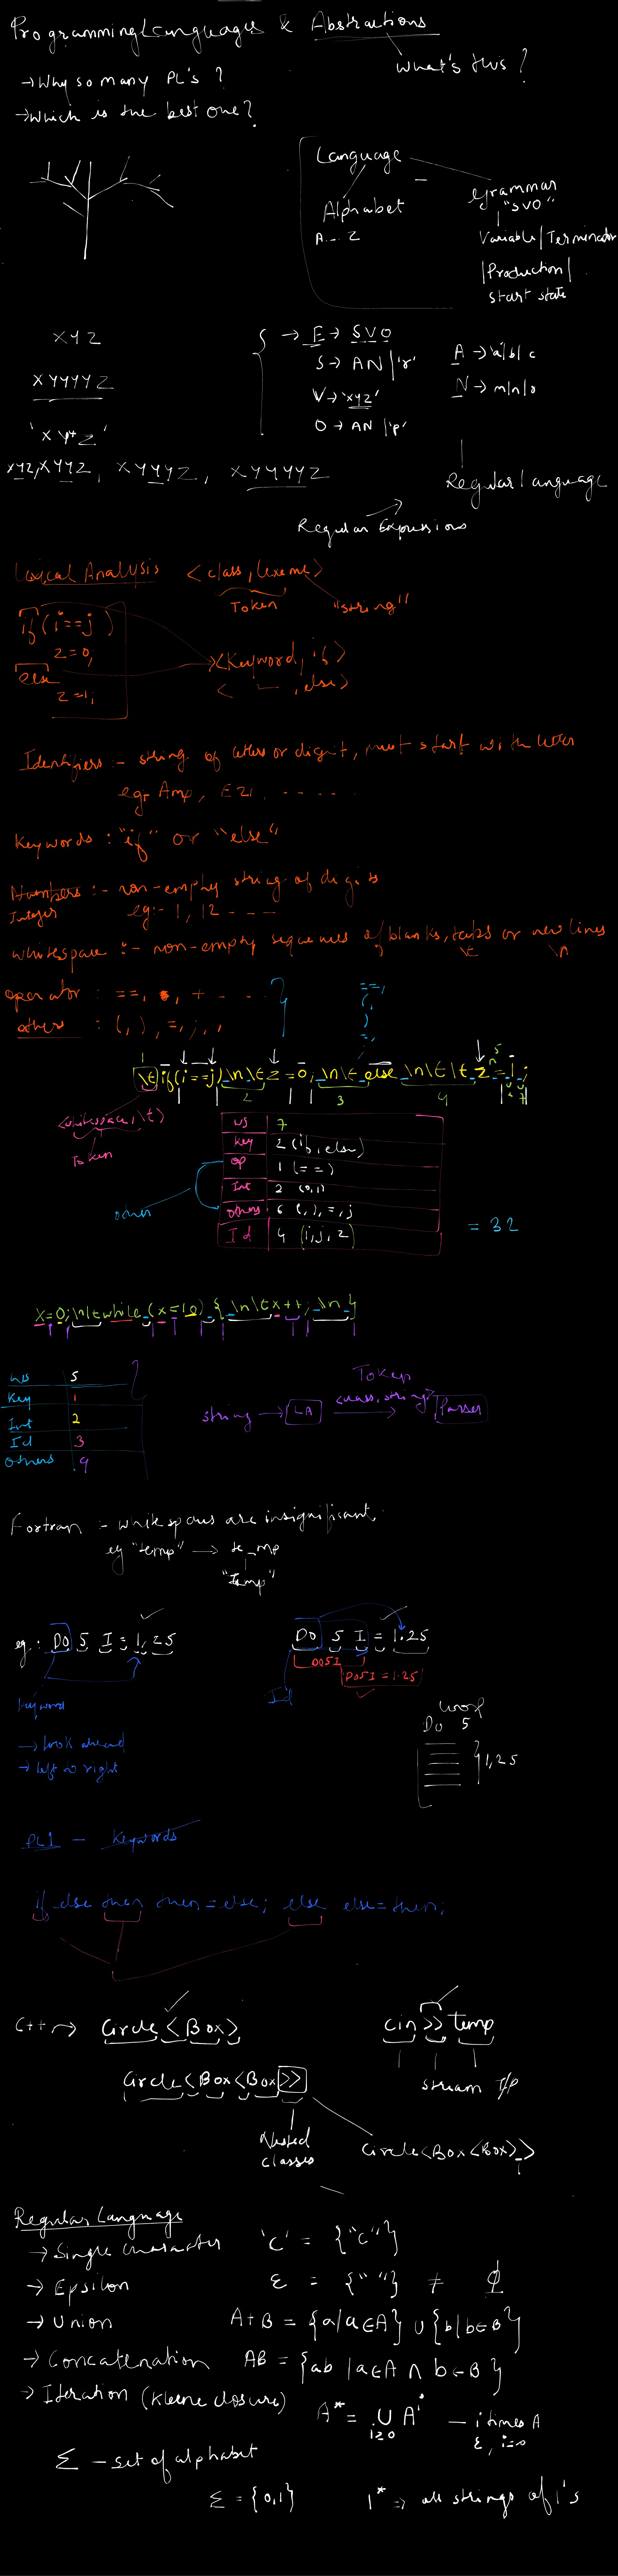 Programming Languages & Abstractions
What's this?
→ Why so many PL's?
→ Which is the best one?
Language
Alphabet
A...Z
Grammar
"SVO"
Variable/Terminator
/Production/
start state
XYZ
XYYYYZ
'XY+Z'
XYZ, XYYZ, XYYYZ, XYYYYZ
→ E → SVO
S → AN/'r'
V → 'xyz'
O → AN/'p'
A → 'a/b/c
N → m/n/o
Regular Language
Regular Expressions
Lexical Analysis <class, lexeme>
Token "string"
if(i==j)
z=0;
else
z=1;
<Keyword, if>
< — , else>
Identifiers :- string of letters or digit, must start with letter
eg:- Amp, EZ1, .....
Keywords : "if" or "else"
Numbers :- non-empty string of digits
Integer eg:- 1, 12 ....
whitespace :- non-empty sequences of blanks, tabs or new lines
\t \n
operator : ==, *, + ....
others : (, ), =, ;, ,
==,
(,
)
=,
1 5
\t if(i==j) \n\tz=0; \n\t else \n\t\t z=1;
2 3 4 6 7
<whitespace, \t>
Token
WS 7
Key 2 (if, else)
OP 1 (==)
Int 2 (0,1)
others 6 (, ), =, ;
Id 4 (i, j, z)
other
= 32
x=0;\n\twhile (x<10) { \n\tx++; \n }
WS 5
Key 1
Int 2
Id 3
others 9
string → LA → Parser
Token
<class, string>
Fortran :- white spaces are insignificant.
eg "temp" → te_mp
"temp"
eg: DO 5 I = 1,25
DO 5 I = 1.25
DO5I
DO5I = 1.25
keyword
Id
→ look ahead
→ left to right
Loop
Do 5
1,25
PL1 - Keywords
if else then then = else; else else = then;
C++ → Circle<Box>
cin >> temp
stream I/P
Circle<Box<Box>>
Nested
classes
Circle<Box<Box>_>
Regular Language
→ Single character 'c' = {"c"}
→ Epsilon ε = {" "} ≠ ϕ
→ Union A+B = {a/a∈A} ∪ {b/b∈B}
→ Concatenation AB = {ab / a∈A ∩ b∈B}
→ Iteration (Kleene closure) A* = ∪ Aⁱ — i times A
i≥0 ε, i=0
Σ - set of alphabet
Σ = {0,1} 1* ⇒ all strings of 1's